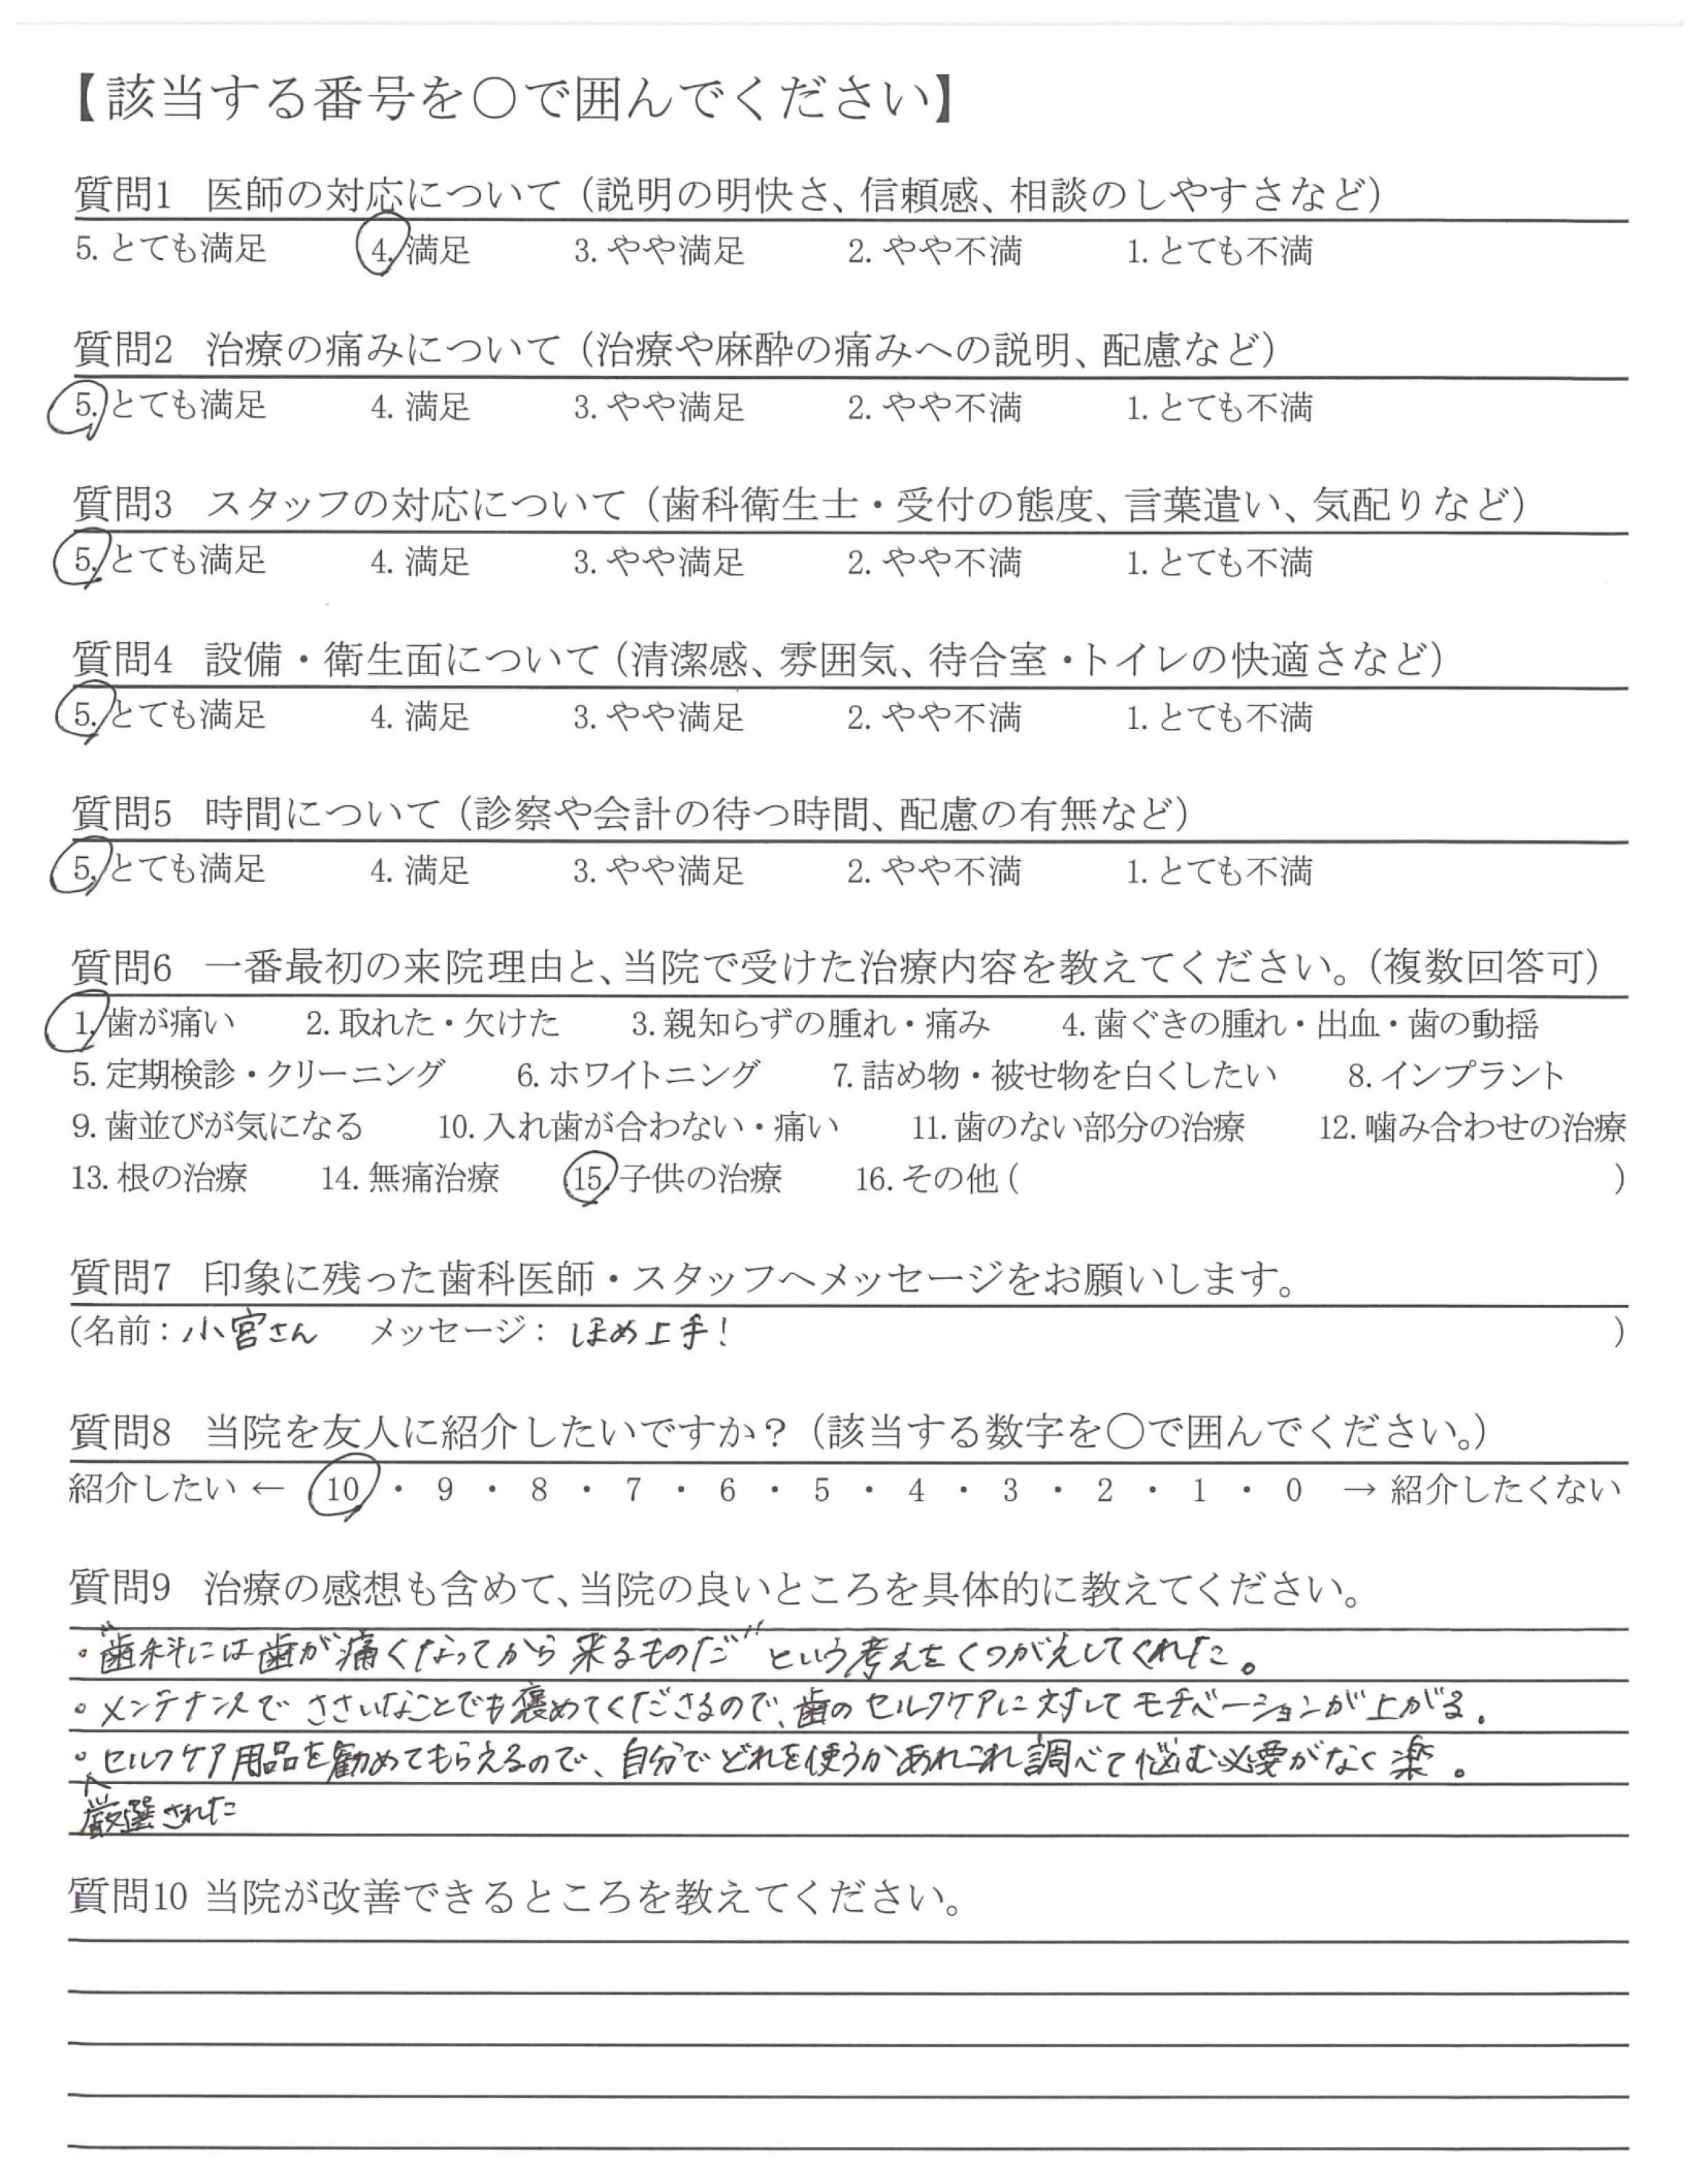 【該当する番号を〇で囲んでください】
質問1 医師の対応について（説明の明快さ、信頼感、相談のしやすさなど）
5. とても満足 4. 満足 3. やや満足 2. やや不満 1. とても不満
質問2 治療の痛みについて（治療や麻酔の痛みへの説明、配慮など）
5. とても満足 4. 満足 3. やや満足 2. やや不満 1. とても不満
質問3 スタッフの対応について（歯科衛生士・受付の態度、言葉遣い、気配りなど）
5. とても満足 4. 満足 3. やや満足 2. やや不満 1. とても不満
質問4 設備・衛生面について（清潔感、雰囲気、待合室・トイレの快適さなど）
5. とても満足 4. 満足 3. やや満足 2. やや不満 1. とても不満
質問5 時間について（診察や会計の待つ時間、配慮の有無など）
5. とても満足 4. 満足 3. やや満足 2. やや不満 1. とても不満
質問6 一番最初の来院理由と、当院で受けた治療内容を教えてください。（複数回答可）
1. 歯が痛い 2. 取れた・欠けた 3. 親知らずの腫れ・痛み 4. 歯ぐきの腫れ・出血・歯の動揺
5. 定期検診・クリーニング 6. ホワイトニング 7. 詰め物・被せ物を白くしたい 8. インプラント
9. 歯並びが気になる 10. 入れ歯が合わない・痛い 11. 歯のない部分の治療 12. 噛み合わせの治療
13. 根の治療 14. 無痛治療 15. 子供の治療 16. その他（ ）
質問7 印象に残った歯科医師・スタッフへメッセージをお願いします。
（名前：小宮さん メッセージ：ほめ上手！ ）
質問8 当院を友人に紹介したいですか？（該当する数字を〇で囲んでください。）
紹介したい ← 10 ・ 9 ・ 8 ・ 7 ・ 6 ・ 5 ・ 4 ・ 3 ・ 2 ・ 1 ・ 0 → 紹介したくない
質問9 治療の感想も含めて、当院の良いところを具体的に教えてください。
・"歯科には歯が痛くなってから来るものだ"という考えをくつがえしてくれた。
・メンテナンスでささいなことでも褒めてくださるので、歯のセルフケアに対してモチベーションが上がる。
・セルフケア用品を勧めてもらえるので、自分でどれを使うかあれこれ調べて悩む必要がなく楽。
厳選された
質問10 当院が改善できるところを教えてください。